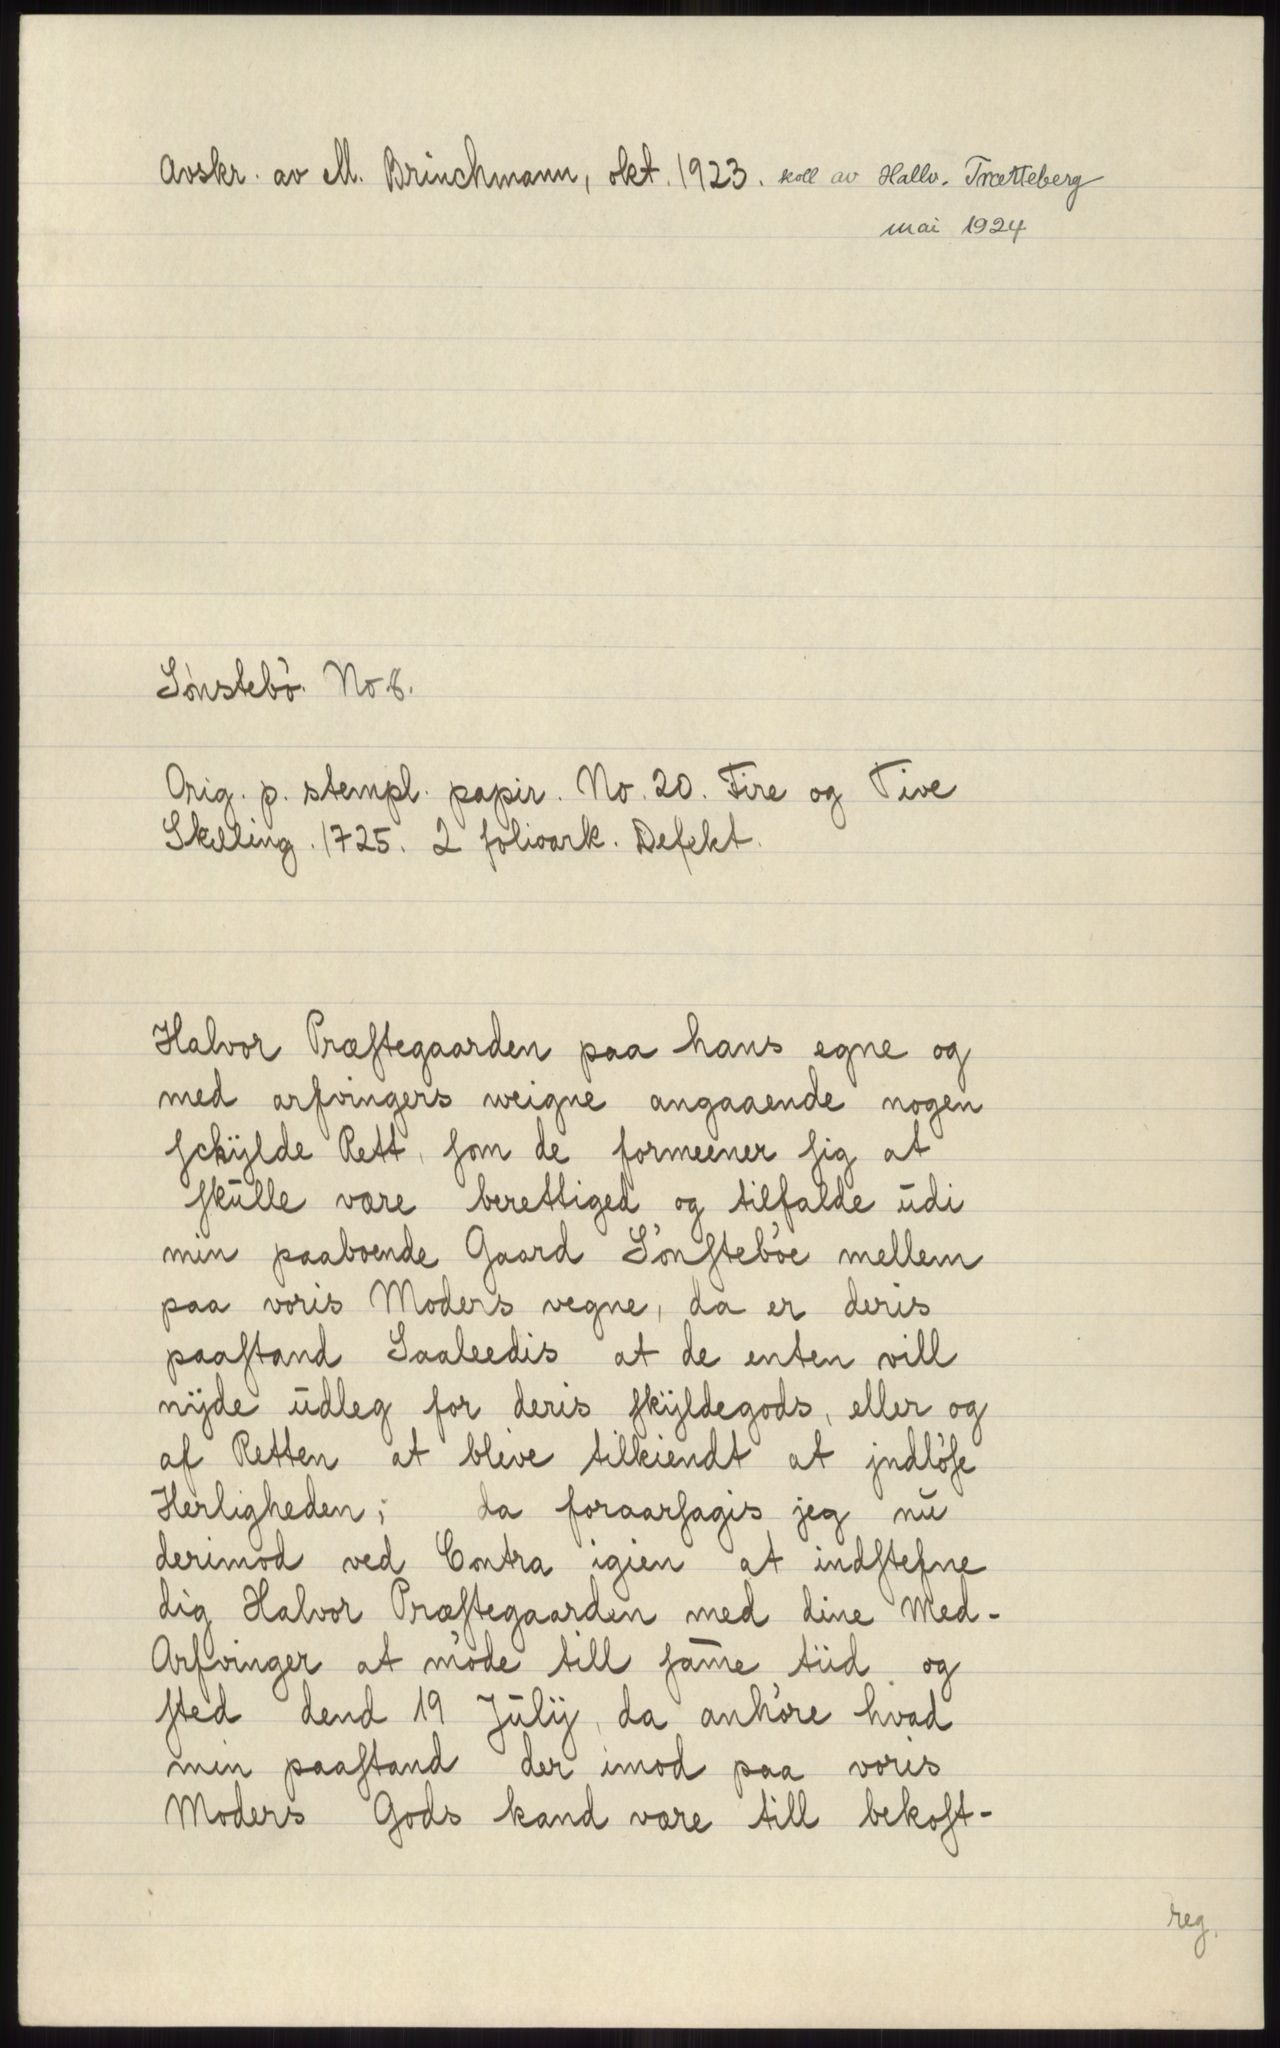 Avskr. av M. Brinchmann, okt. 1923. koll av Hallv. Trætteberg
mai 1924
Sönstebö. No 8.
Orig. p. stempl. papir. No. 20. Fire og Tive
Skilling. 1725. 2 folioark. Defekt.
Halvor Præstegaarden paa hans egne og
med arfvingers weigne angaaende nogen
schÿlde Rett, som de formeener sig at
skūlle være berettiged og tilfalde ūdi
min paaboende Gaard Sönsteböe mellem
paa voris Moders vegne, da er deris
paastand Saaleedis at de enten vill
nÿde ūdleg for deris skÿldegods, eller og
af Retten at blive tilkiendt at jndlöse
Herligheden; da foraarsagis jeg nū
derimod ved Contra igien at indstefne
dig Halvor Præstegaarden med dine Med-
Arfvinger at möde till sam̄e tiid og
sted dend 19 Jūlÿ, da anhöre hvad
min paastand der imod paa voris
Moders Gods kand være till bekost-
reg.